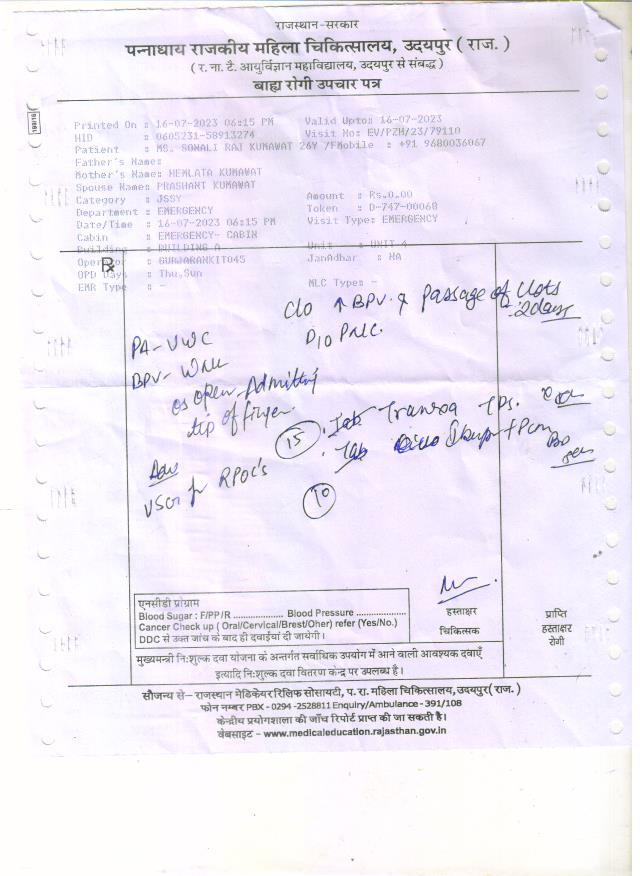 राजस्थान-सरकार
पन्नाधाय राजकीय महिला चिकित्सालय, उदयपुर ( राज. )
( र. ना. टै. आयुर्विज्ञान महाविद्यालय, उदयपुर से संबद्ध )
बाह्य रोगी उपचार पत्र
Printed On : 16-07-2023 06:15 PM Valid Upto: 16-07-2023
HID : 0605231-58913274 Visit No: EV/PZH/23/79110
Patient : MS. SONALI RAJ KUMAWAT 26Y /F Mobile : +91 9680036067
Father's Name:
Mother's Name: HEMLATA KUMAWAT
Spouse Name: PRASHANT KUMAWAT
Category : JSSY Amount : Rs.0.00
Department : EMERGENCY Token : D-747-00068
Date/Time : 16-07-2023 06:15 PM Visit Type: EMERGENCY
Cabin : EMERGENCY- CABIN
Building : BUILDING A Unit : UNIT 4
Operator : GURJARANKIT045 JanAadhar : NA
OPD Days : Thu,Sun
EMR Type : - MLC Type: -
Rx
C/o ↑ BPV & Passage of Clots
2 days
PA-
BPV-
os open Admitting
tip of finger
15 . Tab
. Tab
Adv
USG for RPOC's
10
एनसीडी प्रोग्राम
Blood Sugar : F/PP/R .................... Blood Pressure ....................
Cancer Check up ( Oral/Cervical/Brest/Oher) refer (Yes/No.)
DDC से उक्त जांच के बाद ही दवाईयां दी जायेगी।
हस्ताक्षर
चिकित्सक
प्राप्ति
हस्ताक्षर
रोगी
मुख्यमंत्री निःशुल्क दवा योजना के अन्तर्गत सर्वाधिक उपयोग में आने वाली आवश्यक दवाएँ
इत्यादि निःशुल्क दवा वितरण केन्द्र पर उपलब्ध है।
सौजन्य से- राजस्थान मेडिकेयर रिलिफ सोसायटी, प. रा. महिला चिकित्सालय, उदयपुर( राज. )
फोन नम्बर PBX - 0294 -2528811 Enquiry/Ambulance - 391/108
केन्द्रीय प्रयोगशाला की जाँच रिपोर्ट प्राप्त की जा सकती है।
वेबसाइट – www.medicaleducation.rajasthan.gov.in